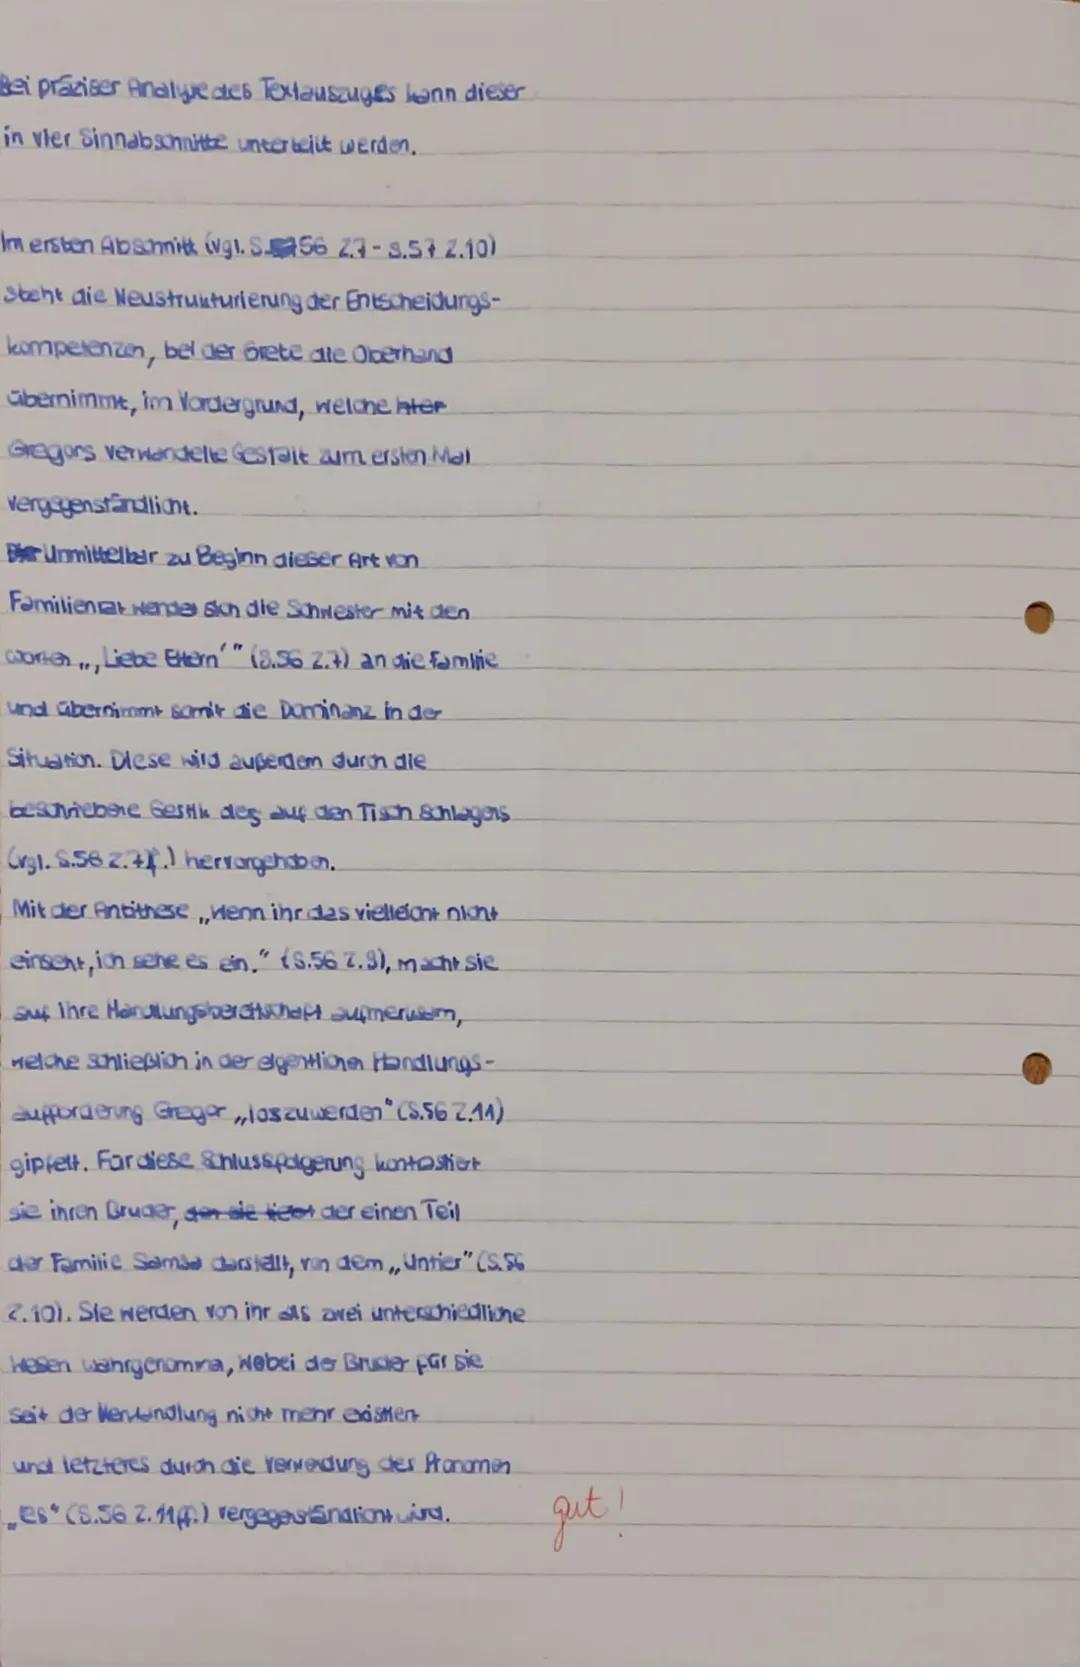 Bei präziser Analyse des Textauszuges kann dieser
in vier Sinnabschnitte unterteilt werden.
Im ersten Abschnitt (vgl. S. 56 Z.7 - S.57 Z.10)
steht die Neustrukturierung der Entscheidungs-
kompetenzen, bei der Grete die Oberhand
übernimmt, im Vordergrund, welche hier
Gregors verwandelte Gestalt zum ersten Mal
vergegenständlicht.
Unmittelbar zu Beginn dieser Art von
Familienrat wendet sich die Schwester mit den
Worten „‚Liebe Eltern'" (S.56 Z.7) an die Familie
und übernimmt somit die Dominanz in der
Situation. Diese wird außerdem durch die
beschriebene Gestik des auf den Tisch Schlagens
(vgl. S.56 Z.7f.) hervorgehoben.
Mit der Antithese „Wenn ihr das vielleicht nicht
einseht, ich sehe es ein." (S.56 Z.9), macht sie
auf ihre Handlungsbereitschaft aufmerksam,
welche schließlich in der eigentlichen Handlungs-
aufforderung Gregor „loszuwerden" (S.56 Z.11)
gipfelt. Für diese Schlussfolgerung kontrastiert
sie ihren Bruder, den sie liebt der einen Teil
der Familie Samsa darstellt, von dem „Untier" (S.56
Z.10). Sie werden von ihr als zwei unterschiedliche
Wesen wahrgenommen, wobei der Bruder für sie
seit der Verwandlung nicht mehr existiert
und letzteres durch die Verwendung des Pronomen
„es" (S.56 Z.11ff.) vergegenständlicht wird.
gut!